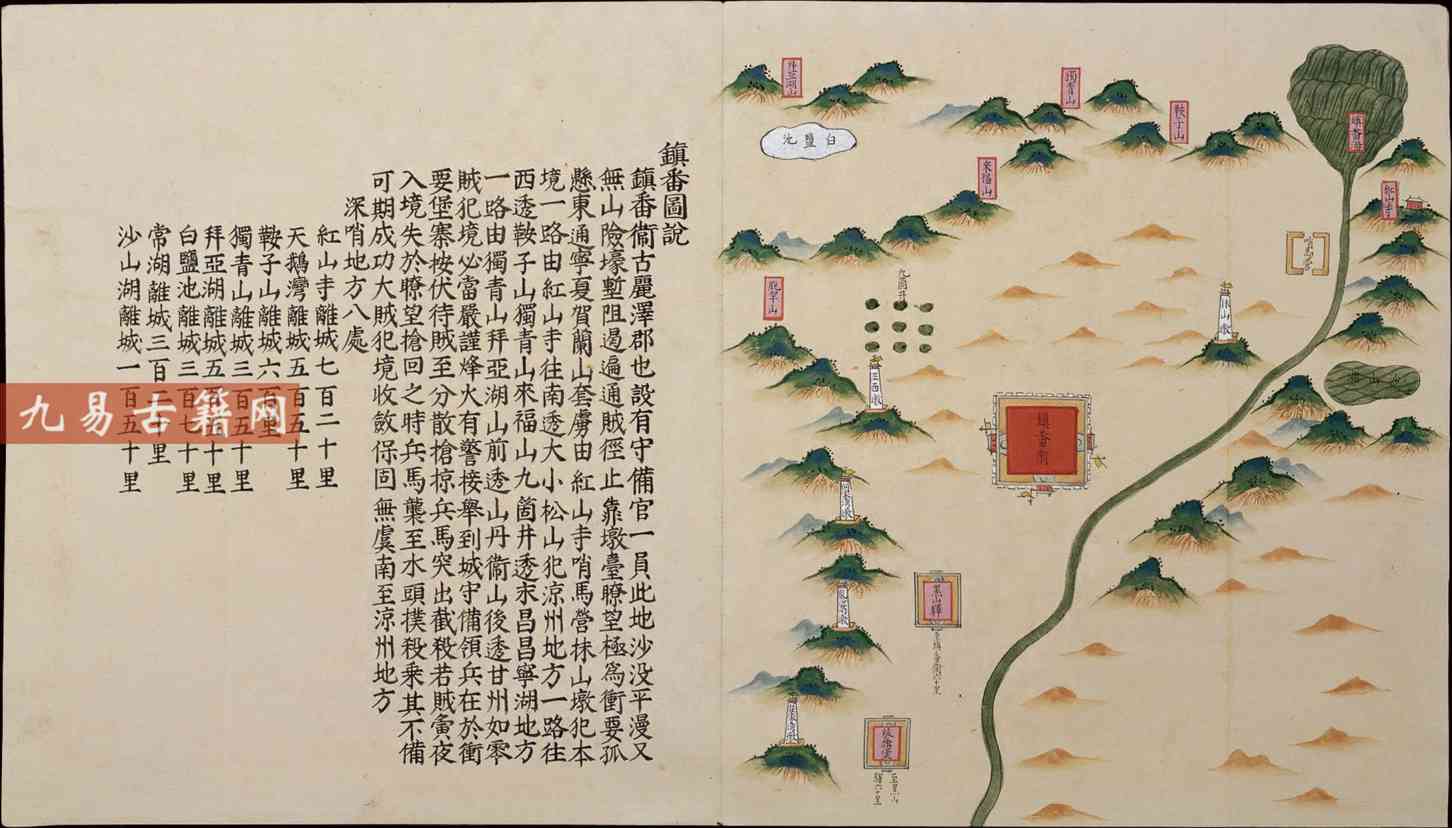 鎮番圖說
鎮番衞古麗澤郡也設有守備官一員此地沙没平漫又
無山險壕塹阻遏遍通賊徑止靠墩臺瞭望極為衝要孤
懸東通寧夏賀蘭山套虜由紅山寺哨馬營抹山墩犯本
境一路由紅山寺往南透大小松山犯涼州地方一路往
西透鞍子山獨青山來福山九箇井透永昌昌寧湖地方
一路由獨青山拜亞湖山前透山丹衞山後透甘州如零
賊犯境必當嚴謹烽火有警接舉到城守備領兵在於衝
要堡寨按伏待賊至分散搶掠兵馬突出截殺若賊寅夜
入境失於瞭望搶回之時兵馬襲至水頭撲殺乘其不備
可期成功大賊犯境收斂保固無虞南至涼州地方
深哨地方八處
紅山寺離城七百二十里
天鵝灣離城五百五十里
鞍子山離城六百里
獨青山離城三百五十里
拜亞湖離城五百六十里
白鹽池離城三百七十里
常湖離城三百二十里
沙山湖離城一百五十里
九易古籍网
拜亞湖山
白鹽池
獨青山
鞍子山
來福山
紅山寺
九箇井
抹山墩
沙山湖
鎮番衞
黑山驛